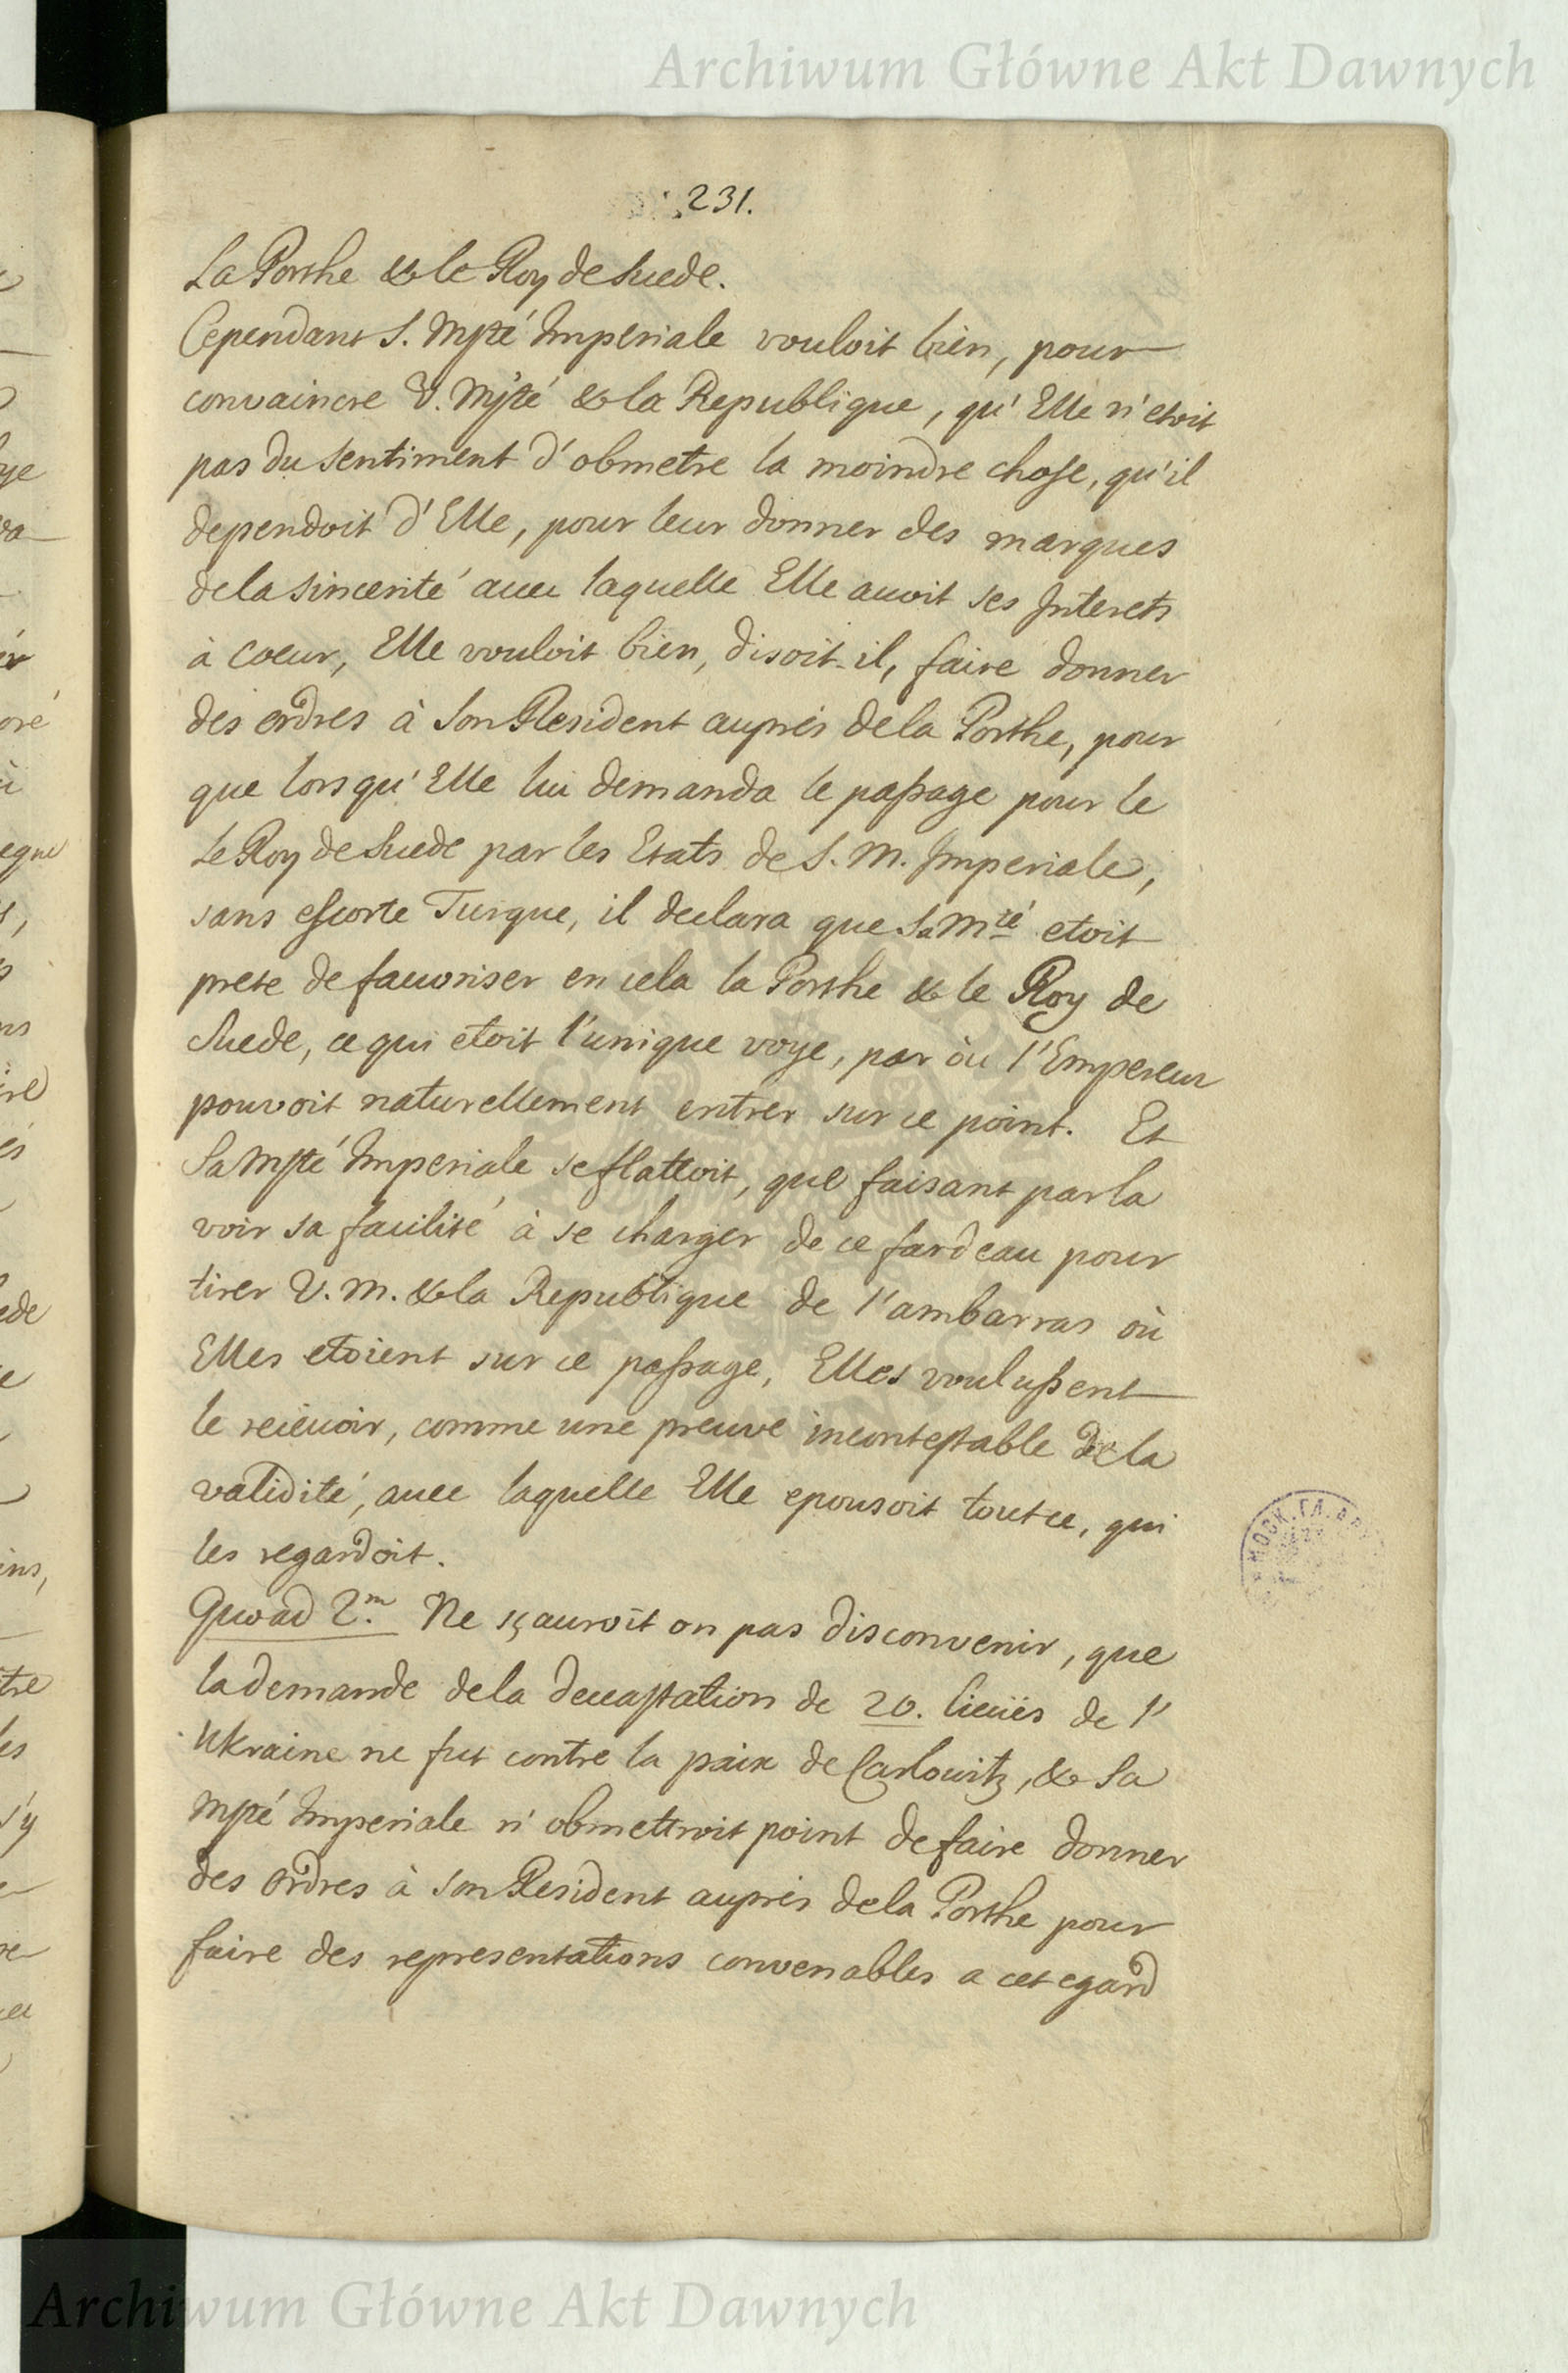 Archiwum Główne Akt Dawnych
231.
La Porthe & le Roy de Suede.
Cependant S. Mjté Imperiale vouloit bien, pour
convaincre V. Mjté & la Republique, qu'Elle n'etoit
pas du sentiment d'obmetre la moindre chose, qu'il
dependoit d'Elle, pour leur donner des marques
de la sincerité avec laquelle Elle avoit ses Interets
à coeur, Elle vouloit bien, disoit-il, faire donner
des ordres à Son Resident auprés de la Porthe, pour
que lorsqu'Elle lui demanda le passage pour le
Le Roy de Suede par les Etats de S. M. Imperiale,
sans escorte Turque, il declara que Sa Mté etoit
prete de favoriser en cela la Porthe & le Roy de
Suede, ce qui etoit l'unique voye, par où l'Empereur
pouvoit naturellement entrer sur ce point. Et
Sa Mjté Imperiale se flattoit, que faisant par la
voir sa facilité à se charger de ce fardeau pour
tirer V. M. & la Republique de l'ambarras où
Elles etoient sur ce passage, Elles voulussent
le recevoir, comme une preuve incontestable de la
validité, avec laquelle Elle epousoit tout ce, qui
les regardoit.
Quoad 2.m Ne sçauroit on pas disconvenir, que
la demande de la devastation de 20. lieües de l'
Ukraine ne fut contre la paix de Carlowitz, & Sa
Mjté Imperiale n'obmettroit point de faire donner
des ordres à son Resident auprés de la Porthe pour
faire des representations convenables a cet egard
Archiwum Główne Akt Dawnych